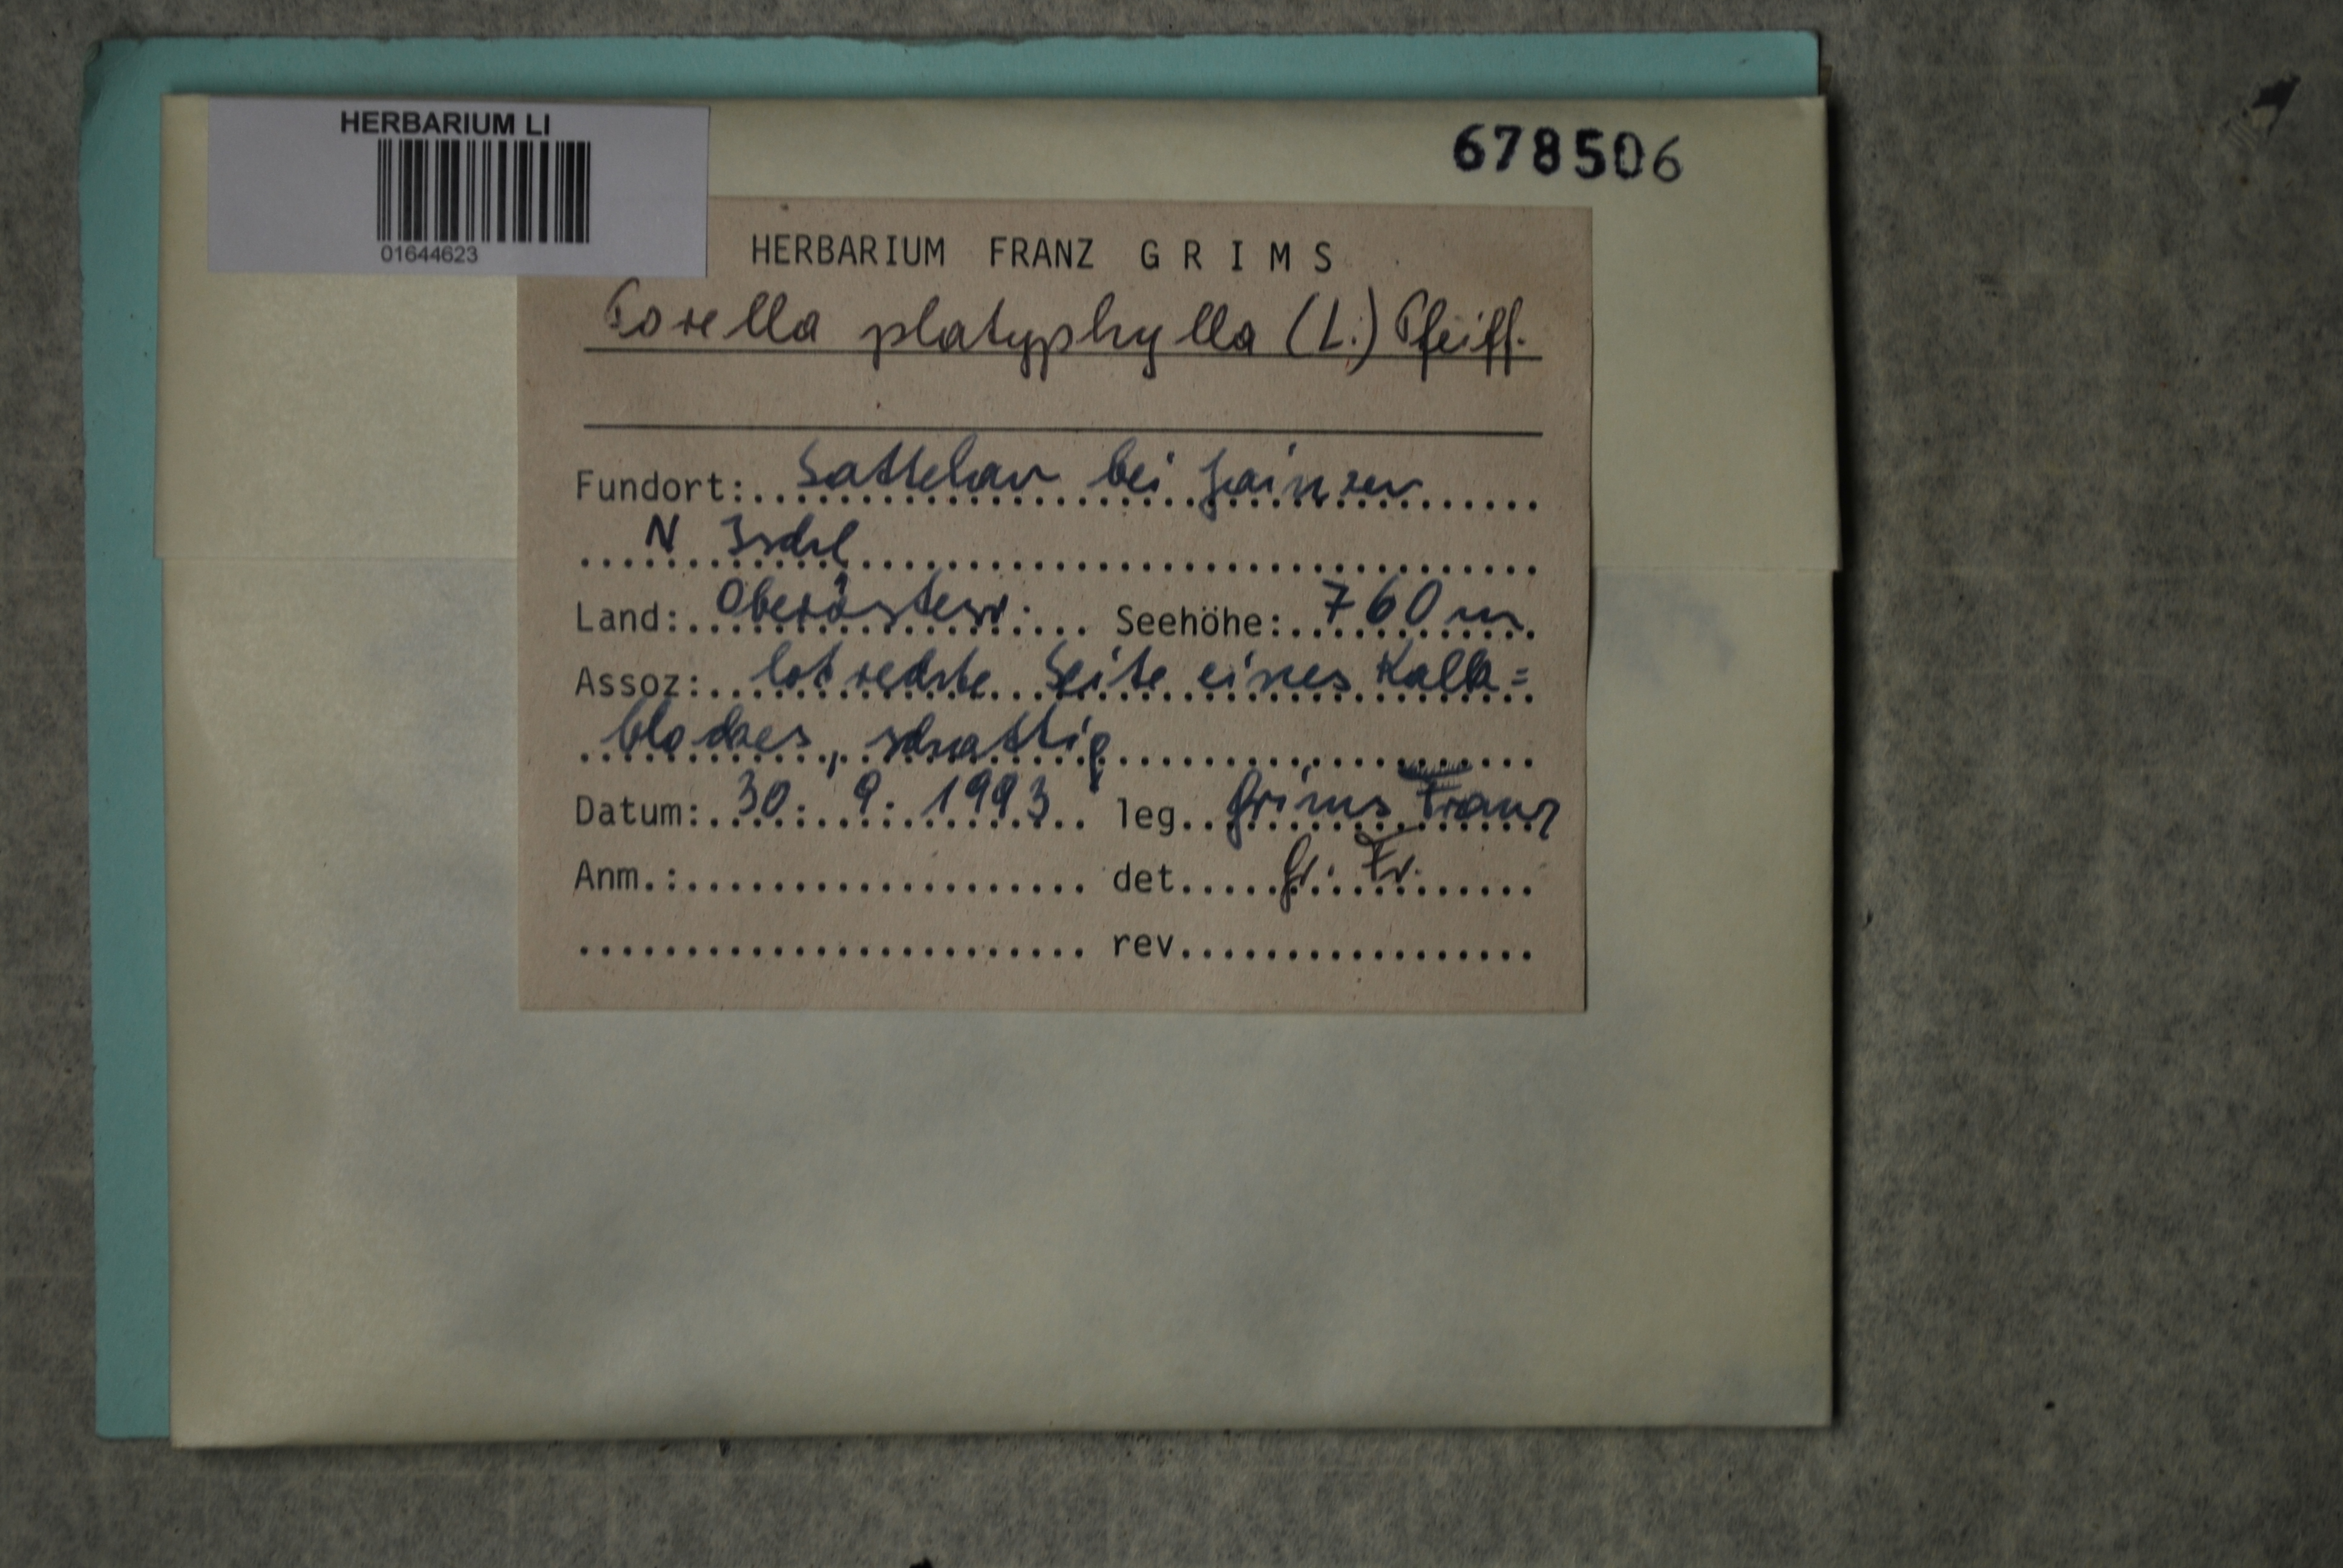 HERBARIUM LI
01644623
678506
HERBARIUM FRANZ GRIMS
Porella platyphylla (L.) Pfeiff.
Fundort: Sattelau bei Jainzen
N Ischl
Land: Oberösterr. Seehöhe: 760 m
Assoz: lotrechte Seite eines Kalk=
blockes, schattig
Datum: 30. 9. 1993 leg. Grims Franz
Anm.: det. Gr. Fr.
rev.